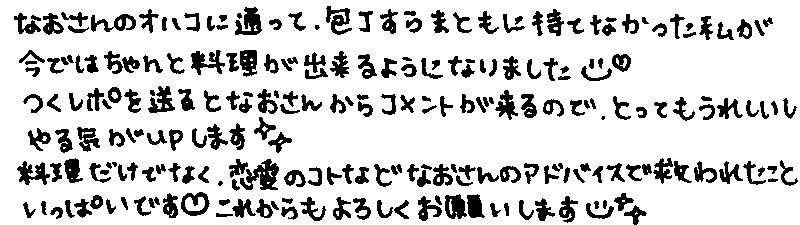 なおさんのオハコに通って、包丁すらまともに持てなかった私が
今ではちゃんと料理が出来るようになりました
つくレポを送るとなおさんからコメントが来るので、とってもうれしいし
やる気がupします
料理だけでなく、恋愛のコトなどなおさんのアドバイスで救われたこと
いっぱいです♡これからもよろしくお願いします